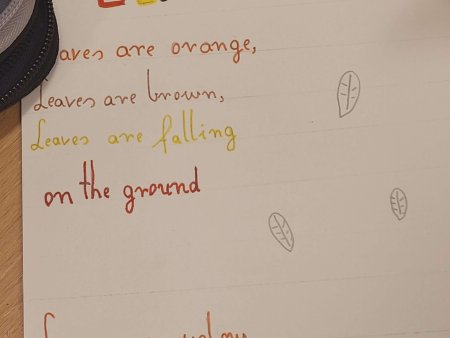 aves are orange,
Leaves are brown,
Leaves are falling
on the ground